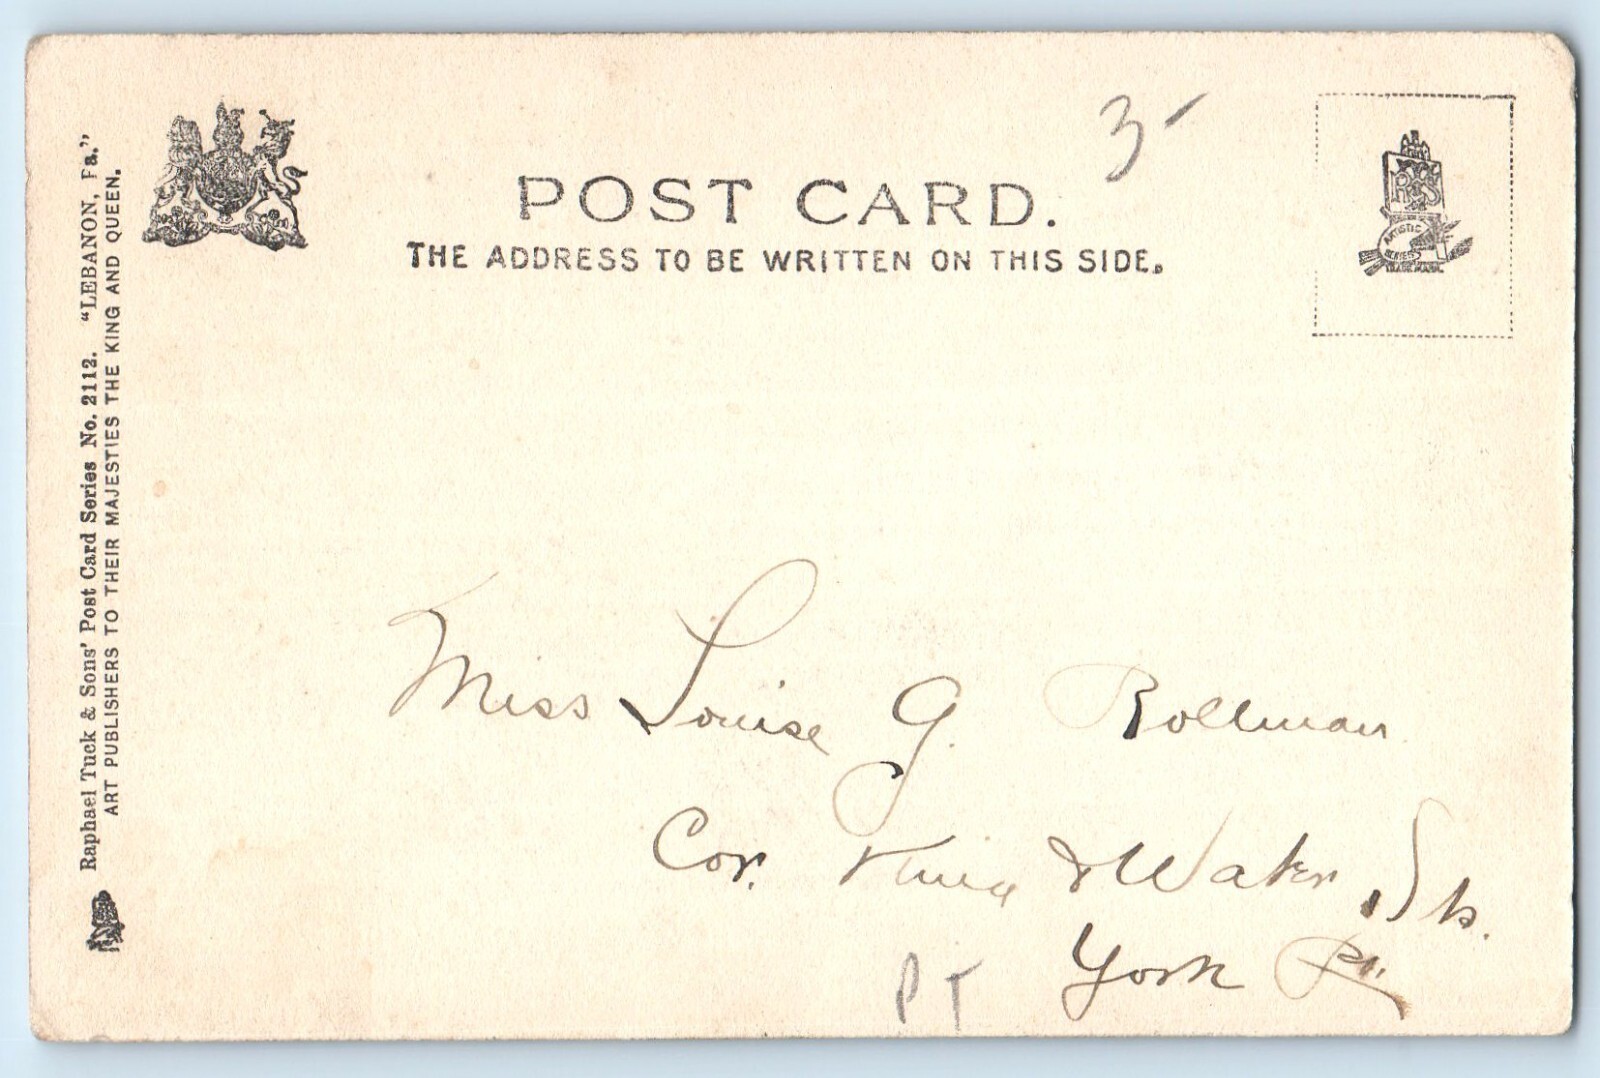 Raphael Tuck & Sons' Post Card Series No. 2112. "LEBANON, Pa."
ART PUBLISHERS TO THEIR MAJESTIES THE KING AND QUEEN.
3-
POST CARD.
THE ADDRESS TO BE WRITTEN ON THIS SIDE.
R S
ARTISTIC
SERIES
TRADE MARK
Miss Louise G. Rollman
Cor. King & Water Sts.
York Pa.
P T